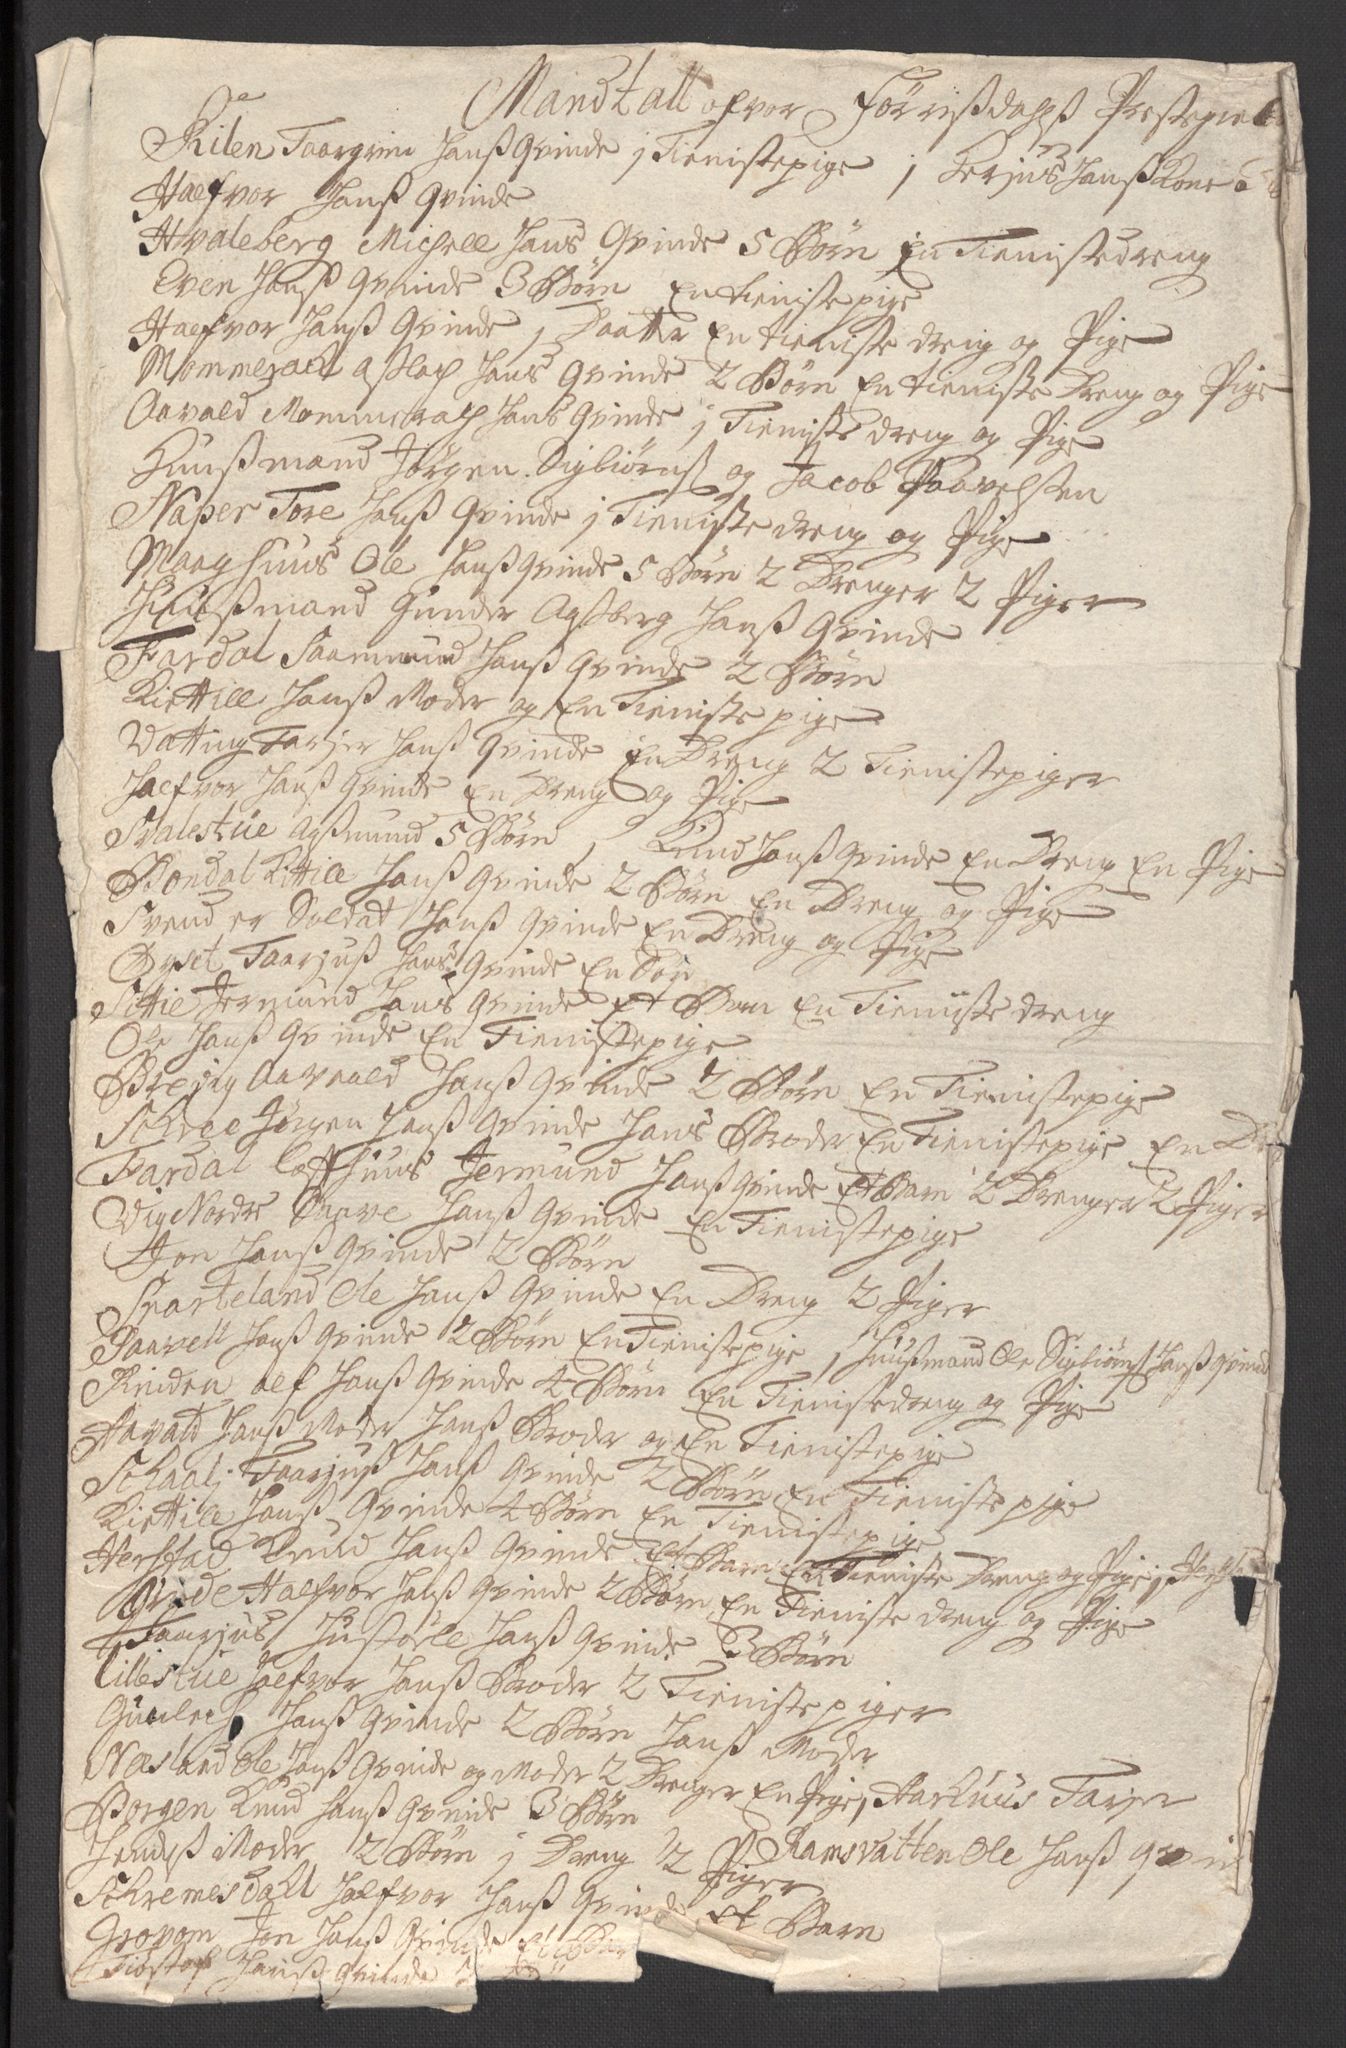 Mandtall ofvor Förrißdahls Prestegield
Kilen Taargrim Hanß Qvinde j Tienistepige j Terjus Hanß Kone
Halfvor Hanß Qvinde
Hvaleberg Michell Hans Qvinde 5 Börn En Tienistedreng
Even Hanß Qvinde 3 Börn En tienistepige
Halfvor Hanß Qvinde j Daatter En tieniste dreng og Pige
Mommerack aslach Hans Qvinde 2 Börn En tieniste Dreng og Pige
Oavald Mommerach Hans Qvinde j Tieniste dreng og Pige
Huußmand Jörgen Sigbiörnß og Jacob Paavelsten
Naper Tore Hanß Qvinde j Tieniste dreng og Pige
Maaghuus Ole Hanß Qvinde 5 Börn 2 Drenger 2 Piger
Huußmand Gunder Aaßberg Hanß Qvinde
Fardal Saamund Hanß Qvinde 2 Börn
Kittill Hanß Moder og En Tieniste pige
Vatting Tarjer Hanß Qvinde En Dreng 2 Tienistepiger
Halfvor Hanß Qvinde En Dreng og Pige
Svalestue Aaßmund 5 Börn j Knud Hanß Qvinde En Dreng En Pige
Bondal Kittill Hanß Qvinde 2 Börn En Dreng og Pige
Svend er Soldat Hanß Qvinde En Dreng og Pige
Öyset Taarjuß Hans Qvinde En Sön
Jermund Hans Qvinde Et Barn En Tieniste dreng
Ole Hanß Qvinde En Tienistepige
Oavald Hanß Qvinde 2 Börn En Tienistepige
Schree Jörgen Hanß Qvinde Hans Broder En Tienistepige En Dr
Fardal loffthuus Jermund Hanß Qvinde Et Barn 2 Drenger 2 Piger
Vig Nordre Snave Hanß Qvinde En Tienistepige
Jon Hanß Qvinde 2 Börn
Snarteland Ole Hanß Qvinde En Dreng 2 Piger
Paavell Hanß Qvinde 2 Börn En Tienistepige j Huußmand Ole Sigbiörnß Hanß Qvind
Kinden alf Hanß Qvinde 4 Börn En Tienistedreng og Pige
Aavald Hanß Moder Hanß Broder og En Tienistepige
Schaalj Taarjuß Hanß Qvinde 2 Börn En Tieniste pige
Kittill Hanß Qvinde 4 Börn En Tienistepige
Herstad Knud Hanß Qvinde Et Barn En Tieniste Dreng og Pige j
Halfvor Hanß Qvinde 2 Börn En Tieniste dreng og Pige
Taarjus Hanß Qvinde 3 Börn
Lillestue Halfvor Hanß Broder 2 Tienistepiger
Gunlech Hanß Qvinde 2 Börn Hanß Moder
Næsland Ole Hanß Qvinde og Moder 2 Drenger En Pige, Aarhuus Tarjer
Borgen Knud Hanß Qvinde 3 Börn
Hendiß Moder 2 Börn j Dreng 2 Piger Ramsvatten Ole Hanß Qvin
Schremesdall Halfvor Hanß Qvinde Et Barn
Grovom Jon Hanß Qvinde Et Bar
Tiöstol Hanß Qvinde